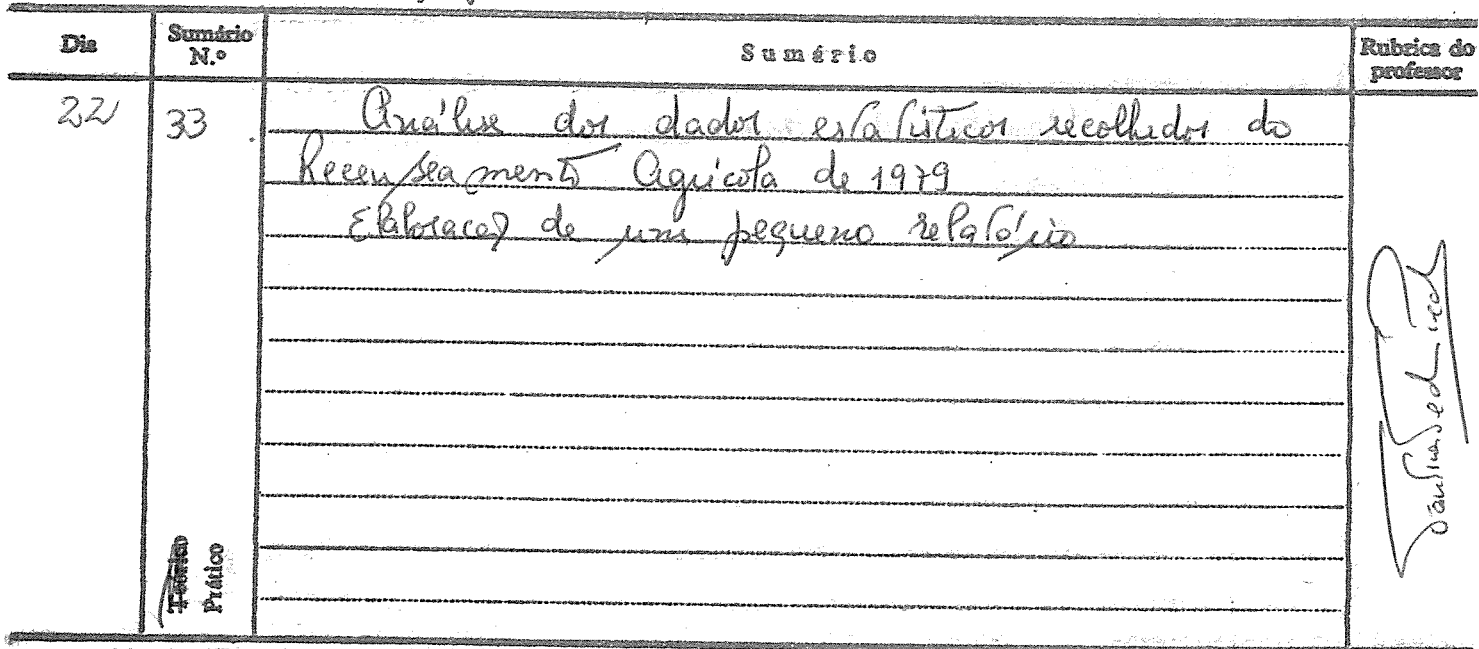 Dia
Sumário N.º
Sumário
Rubrica do professor
22
33
Análise dos dados estatísticos recolhidos do
Recenseamento Agrícola de 1979
Elaboração de um pequeno relatório
Teórico
Prático